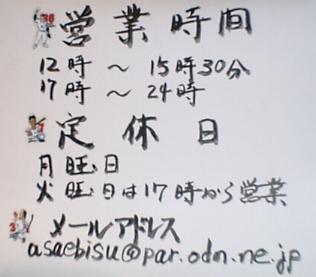 営業時間
12時～15時30分
17時～24時
定休日
月曜日
火曜日は17時から営業
メールアドレス
asaebisu@par.odn.ne.jp